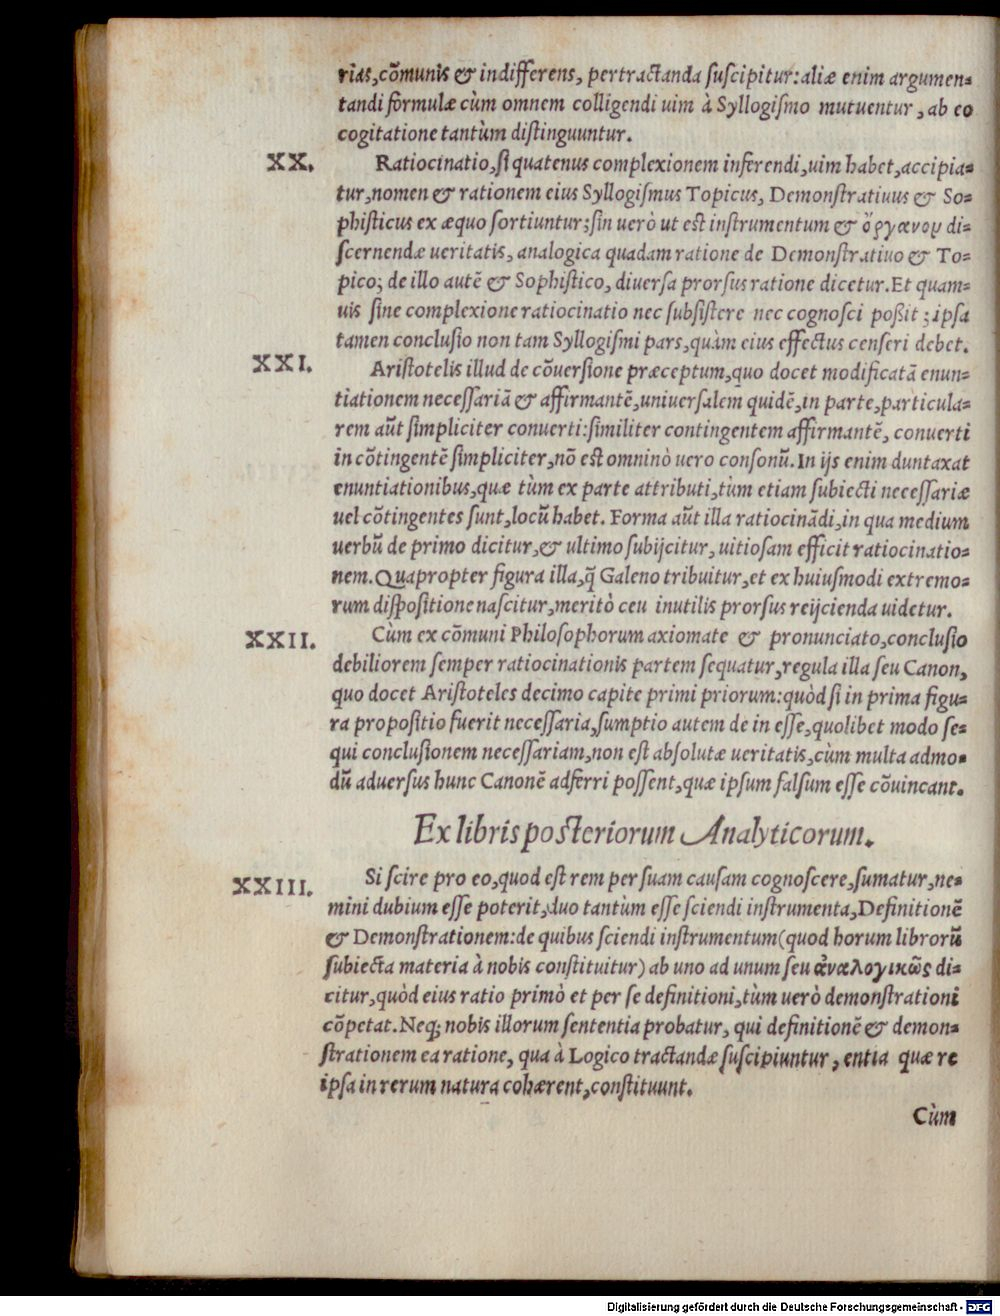 rias,cõmunis & indifferens, pertractanda ſuſcipitur:aliæ enim argumen-
tandi formulæ cùm omnem colligendi uim à Syllogiſmo mutuentur, ab eo
cogitatione tantùm diſtinguuntur.
XX. Ratiocinatio,ſi quatenus complexionem inferendi,uim habet,accipia-
tur,nomen & rationem eius Syllogiſmus Topicus, Demonſtratiuus & So-
phiſticus ex æquo ſortiuntur;ſin uerò ut eſt inſtrumentum & ὄργανον di-
ſcernendæ ueritatis, analogica quadam ratione de Demonſtratiuo & To-
pico; de illo autẽ & Sophiſtico, diuerſa prorſus ratione dicetur.Et quam-
uis ſine complexione ratiocinatio nec ſubſiſtere nec cognoſci poßit ; ipſa
tamen concluſio non tam Syllogiſmi pars,quàm eius effectus cenſeri debet.
XXI. Ariſtotelis illud de cõuerſione præceptum,quo docet modificatã enun-
tiationem neceſſariã & affirmantẽ,uniuerſalem quidẽ,in parte,particula-
rem aũt ſimpliciter conuerti:ſimiliter contingentem affirmantẽ, conuerti
in cõtingentẽ ſimpliciter,nõ eſt omninò uero conſonũ. In ijs enim duntaxat
enuntiationibus,quæ tùm ex parte attributi,tùm etiam ſubiecti neceſſariæ
uel cõtingentes ſunt,locũ habet. Forma aũt illa ratiocinãdi,in qua medium
uerbũ de primo dicitur,& ultimo ſubijcitur, uitioſam efficit ratiocinatio-
nem.Quapropter figura illa,q̃ Galeno tribuitur,et ex huiuſmodi extremo-
rum diſpoſitione naſcitur,meritò ceu inutilis prorſus reijcienda uidetur.
XXII. Cùm ex cõmuni Philoſophorum axiomate & pronunciato,concluſio
debiliorem ſemper ratiocinationis partem ſequatur,regula illa ſeu Canon,
quo docet Ariſtoteles decimo capite primi priorum:quòd ſi in prima figu-
ra propoſitio fuerit neceſſaria,ſumptio autem de in eſſe,quolibet modo ſe-
qui concluſionem neceſſariam,non eſt abſolutæ ueritatis,cùm multa admo-
dũ aduerſus hunc Canonẽ adferri poſſent,quæ ipſum falſum eſſe cõuincant.
Ex libris poſteriorum Analyticorum.
XXIII. Si ſcire pro eo,quod eſt rem per ſuam cauſam cognoſcere,ſumatur,ne-
mini dubium eſſe poterit,duo tantùm eſſe ſciendi inſtrumenta,Definitionẽ
& Demonſtrationem:de quibus ſciendi inſtrumentum(quod horum librorũ
ſubiecta materia à nobis conſtituitur) ab uno ad unum ſeu ἀναλογικῶς di-
citur,quòd eius ratio primò et per ſe definitioni,tùm uerò demonſtrationi
cõpetat.Neq; nobis illorum ſententia probatur, qui definitionẽ & demon-
ſtrationem ea ratione, qua à Logico tractandæ ſuſcipiuntur, entia quæ re
ipſa in rerum natura cohærent,conſtituunt.
Cùm
Digitalisierung gefördert durch die Deutsche Forschungsgemeinschaft - DFG